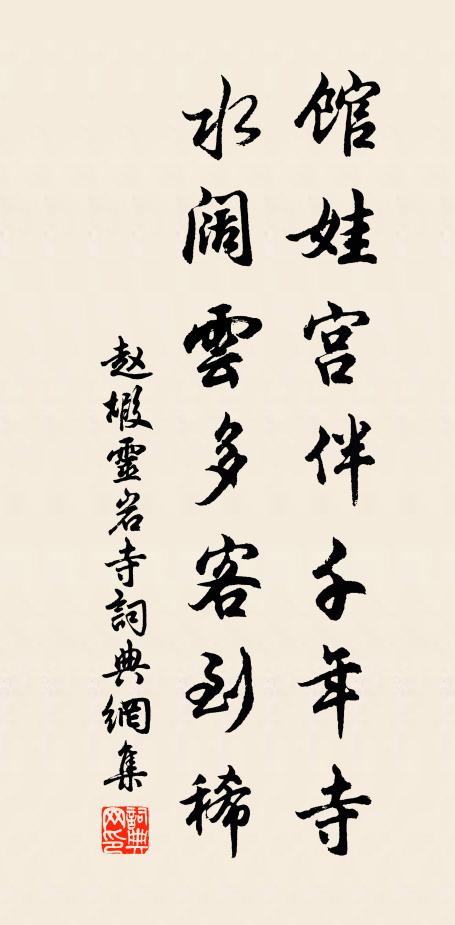 馆娃宫伴千年寺
水阔雲多客到稀
赵嘏靈岩寺詞典網集
詞典網印